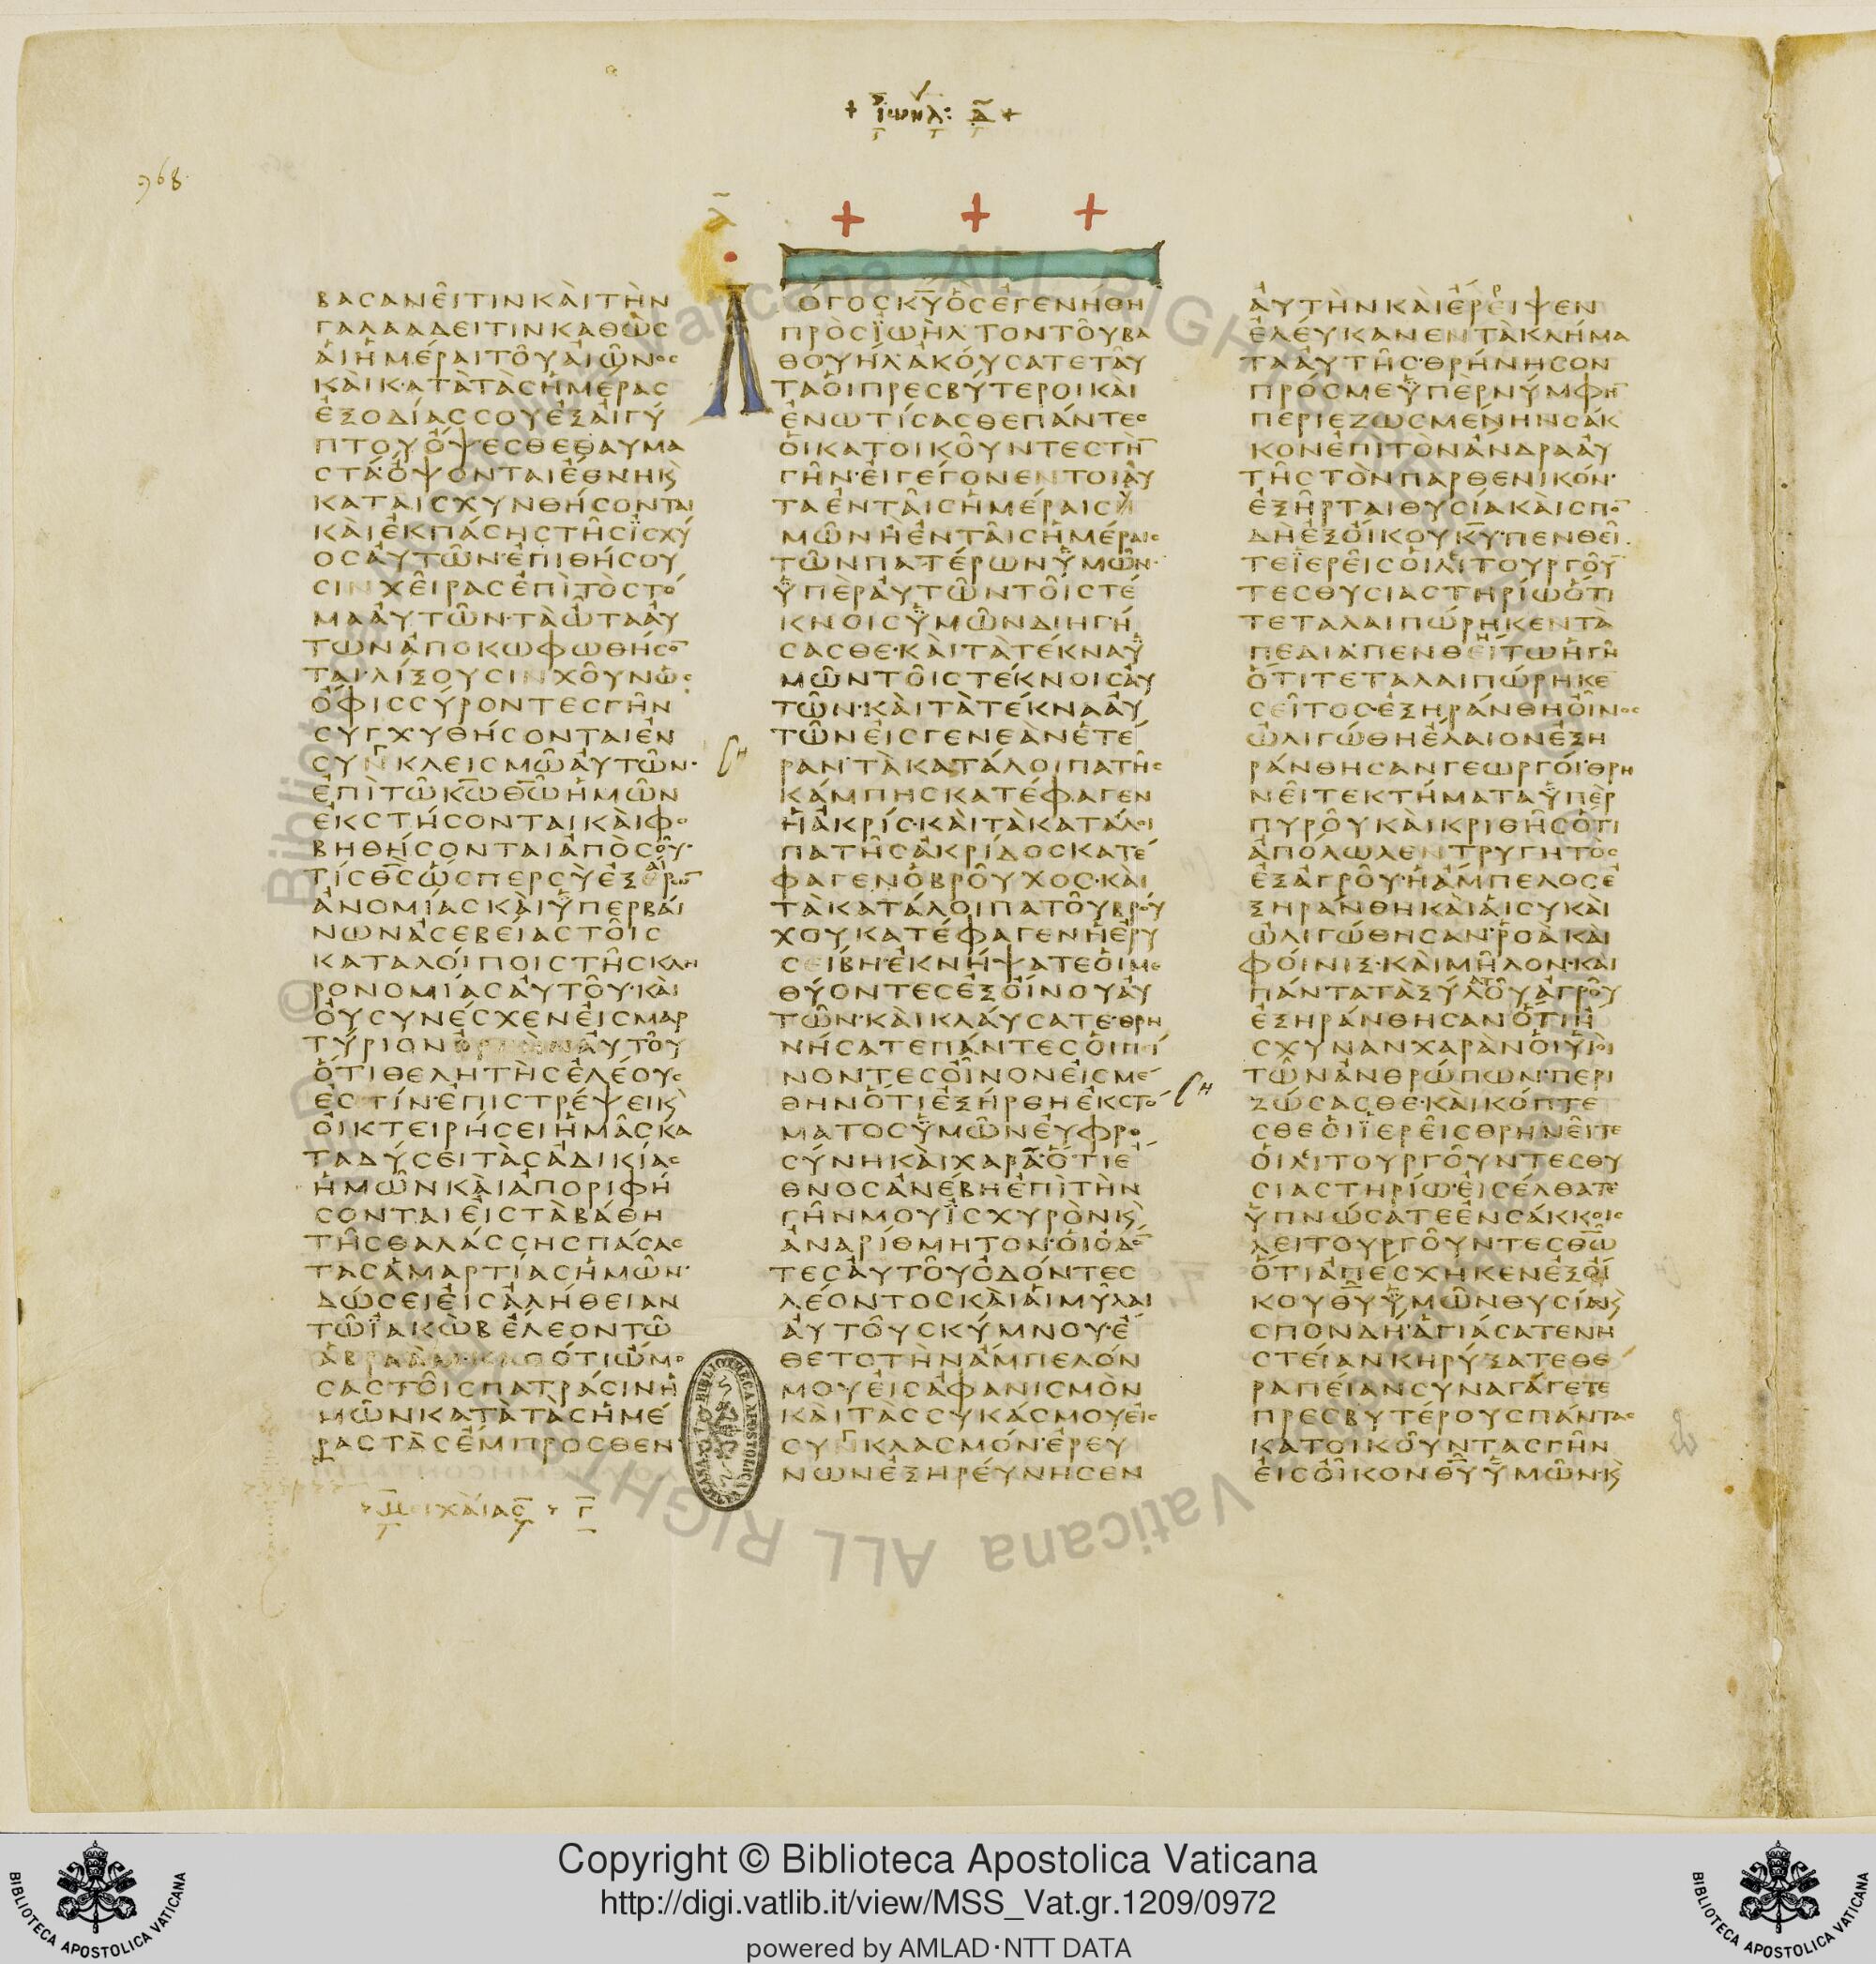 + ϊωηλ: δ +
968
λ
+ + +
βασανεῖτιν καὶ τὴν
γαλααδειτιν καθὼς
ἁι ἡμέραι τοῦ ἀιῶνος
κὰι κατὰ τὰς ἡμέρας
ἐξοδίας σου ἐξ ἀιγύ
πτου ὄψεσθε θαυμα
στά· ὄψονται ἔθνη κ̀
καταισχυνθήσονται
κὰι ἐκ πάσης τῆς ϊσχύ
ος ἀυτῶν· ἐπιθήσου
σιν χεῖρας ἐπὶ τὸ στό
μα ἀυτῶν· τὰ ὦτα ἀυ
τῶν ἀποκωφωθήσο̄
ται· λίξουσιν χοῦν ὡς
ὄφις σύροντες γῆν
συγχυθήσονται ἐν
συνκλεισμῶ ἀυτῶν·
ἐπὶ τῶ κ̅ω̅ θ̅ω̅ ἡμῶν
ἐκστήσονται κὰι φο
βηθήσονται ἀπὸ σοῦ·
τίς θ̅ς̅ ὥσπερ σὺ ἐξαίρω̄
ἀνομίας κὰι ὑπερβάι
νων ἀσεβείας τοῖς
καταλόιποις τῆς κλη
ρονομίας ἀυτοῦ· κὰι
ὀυ συνέσχεν ἐις μαρ
τύριον ὀργὴν ἀυτοῦ
ὅτι θελητὴς ἐλέους
ἐστίν· ἐπιστρέψει κ̀
ὀικτειρήσει ἡμᾶς κα
ταδύσει τὰς ἀδικίας
ἡμῶν κὰι ἀποριφή
σονται ἐις τὰ βάθη
τῆς θαλάσσης πάσας
τὰς ἁμαρτίας ἡμῶν·
δώσει ἐις ἀλήθειαν
τῶ ϊακὼβ ἔλεον τῶ
ἀβραὰμ· καθότι ὤμο
σας τοῖς πατράσιν ἡ
μῶν κατὰ τὰς ἡμέ
ρας τὰς ἔμπροσθεν
μειχάιας γ
όγος κ̅υ̅ ὃς ἐγενήθη
πρὸς ϊωὴλ τὸν τοῦ βα
θουήλ· ἀκόυσατε ταῦ
τα ὁι πρεσβύτεροι κὰι
ἐνωτίσασθε πάντες
ὁι κατοικοῦντες τὴ̄
γῆν· ἐι γέγονεν τοιᾶυ
τα ἐν ταῖς ἡμέραις ὑ
μῶν ἢ ἐν ταῖς ἡμέραις
τῶν πατέρων ὑμῶν·
ὑπὲρ ἀυτῶν τοῖς τέ
κνοις ὑμῶν διηγή
σασθε· κὰι τὰ τέκνα ὑ
μῶν τοῖς τέκνοις ἀυ
τῶν· κὰι τὰ τέκνα ἀυ
τῶν ἐις γενεὰν ἑτέ
ραν· τὰ κατάλοιπα τῆς
κάμπης κατέφαγεν
ἡ ἀκρίς· κὰι τὰ κατάλοι
πα τῆς ἀκρίδος κατέ
φαγεν ὁ βροῦχος· κὰι
τὰ κατάλοιπα τοῦ βρόυ
χου κατέφαγεν ἡ ἐρυ
σείβη· ἐκνήψατε ὁι με
θύοντες ἐξ ὀίνου ἀυ
τῶν· κὰι κλάυσατε· θρη
νήσατε πάντες ὁι πί
νοντες ὀῖνον ἐις μέ
θην ὅτι ἐξήρθη ἐκ στό
ματος ὑμῶν ἐυφρο
σύνη κὰι χαρά· ὅτι ἔ
θνος ἀνέβη ἐπὶ τὴν
γῆν μου ϊσχυρὸν κ̀
ἀναρίθμητον· ὁι ὀδό̄
τες ἀυτοῦ ὀδόντες
λέοντος κὰι ἁι μύλαι
ἀυτοῦ σκύμνου· ἔ
θετο τὴν ἄμπελόν
μου ἐις ἀφανισμὸν
κὰι τὰς συκάς μου ἐις
συγκλασμόν· ἐρευ
νῶν ἐξηρέυνησεν
ἀυτὴν κὰι ἔρριψεν
ἐλέυκανεν τὰ κλήμα
τα ἀυτῆς· θρήνησον
πρός με ὑπὲρ νύμφη̄
περιεζωσμένην σάκ
κον ἐπὶ τὸν ἄνδρα ἀυ
τῆς τὸν παρθενικόν·
ἐξῆρται θυσία κὰι σπο̄
δὴ ἐξ ὀίκου κ̅υ̅· πενθεῖ
τε ϊερεῖς ὁι λιτουργοῦ̄
τες θυσιαστηρίω ὅτι
τεταλαιπώρηκεν τὰ
πεδία· πενθείτω ἡ γῆ
ὅτι τεταλαιπώρηκε
σεῖτος· ἐξηράνθη ὀῖνος
ὠλιγώθη ἔλαιον ἐξη
ράνθησαν γεωργόι· θρη
νεῖτε κτήματα ὑπὲρ
πυροῦ κὰι κριθῆς ὅτι
ἀπόλωλεν τρυγητὸς
ἐξ ἀγροῦ· ἡ ἄμπελος ἐ
ξηράνθη κὰι ἁι συκὰι
ὠλιγώθησαν· ῥοὰ κὰι
φόινιξ· κὰι μῆλον· κὰι
πάντα τὰ ξύλα τοῦ ἀγροῦ
ἐξηράνθησαν ὅτι ἤ
σχυναν χαρὰν ὁι υἱὸι
τῶν ἀνθρώπων· περι
ζώσασθε· κὰι κόπτε
σθε ὁι ϊερεῖς θρηνεῖτε
ὁι λιτουργοῦντες θυ
σιαστηρίω· ἐισέλθατε
ὑπνώσατε ἐν σάκκοις
λειτουργοῦντες θ̅ω̅
ὅτι ἀπέσχηκεν ἐξ ὀί
κου θ̅υ̅ ὑμῶν θυσία κ̀
σπονδή· ἁγιάσατε νη
στείαν κηρύξατε θε
ραπείαν συναγάγετε
πρεσβυτέρους πάντας
κατοικοῦντας γῆν
ἐις ὀῖκον θ̅υ̅ ὑμῶν· κ̀
Copyright © Biblioteca Apostolica Vaticana
http://digi.vatlib.it/view/MSS_Vat.gr.1209/0972
powered by AMLAD·NTT DATA
BIBLIOTECA APOSTOLICA VATICANA
BIBLIOTECA APOSTOLICA VATICANA